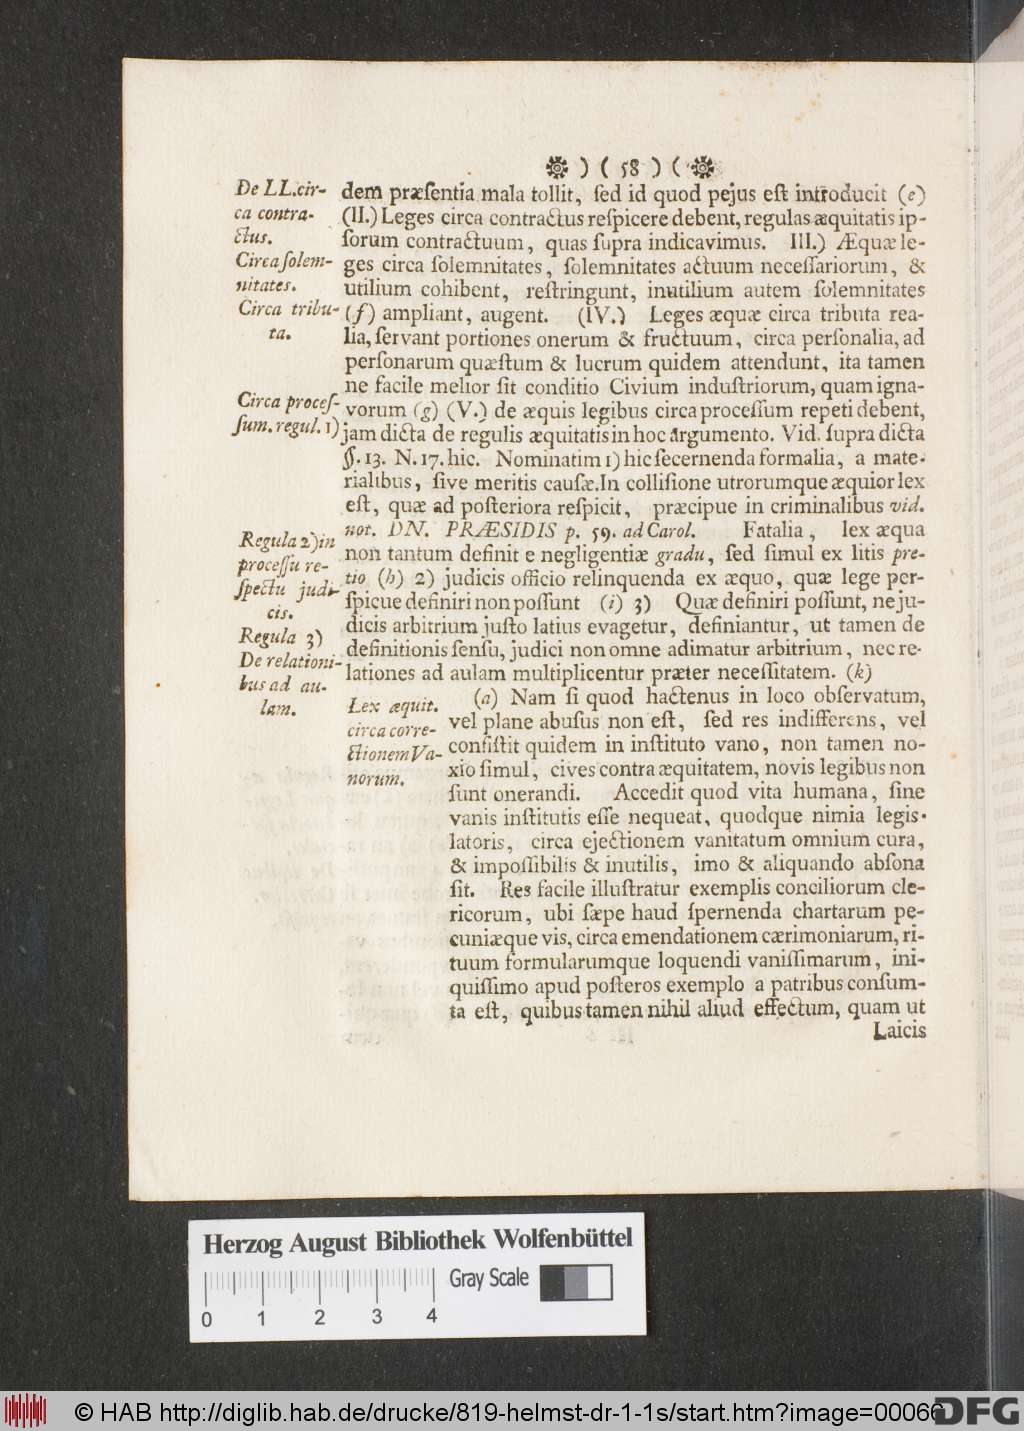 ❁ ) ( 58 ) ( ❁
De LL. cir-
ca contra-
ctus.
Circa ſolem-
nitates.
Circa tribu-
ta.
Circa proceſ-
ſum. regul. 1)
Regula 2) in
proceſſu re-
ſpectu judi-
cis.
Regula 3)
De relationi-
bus ad au-
lam.
dem præſentia mala tollit, ſed id quod pejus eſt introducit (e)
(II.) Leges circa contractus reſpicere debent, regulas æquitatis ip-
ſorum contractuum, quas ſupra indicavimus. III.) Æquæ le-
ges circa ſolemnitates, ſolemnitates actuum neceſſariorum, &
utilium cohibent, reſtringunt, inutilium autem ſolemnitates
(f) ampliant, augent. (IV.) Leges æquæ circa tributa rea-
lia, ſervant portiones onerum & fructuum, circa perſonalia, ad
perſonarum quæſtum & lucrum quidem attendunt, ita tamen
ne facile melior ſit conditio Civium induſtriorum, quam igna-
vorum (g) (V.) de æquis legibus circa proceſſum repeti debent,
jam dicta de regulis æquitatis in hoc argumento. Vid. ſupra dicta
§. 13. N. 17. hic. Nominatim 1) hic ſecernenda formalia, a mate-
rialibus, ſive meritis cauſæ. In colliſione utrorumque æquior lex
eſt, quæ ad poſteriora reſpicit, præcipue in criminalibus vid.
not. DN. PRÆSIDIS p. 59. ad Carol. Fatalia, lex æqua
non tantum definit e negligentiæ gradu, ſed ſimul ex litis pre-
tio (h) 2) judicis officio relinquenda ex æquo, quæ lege per-
ſpicue definiri non poſſunt (i) 3) Quæ definiri poſſunt, ne ju-
dicis arbitrium juſto latius evagetur, definiantur, ut tamen de
definitionis ſenſu, judici non omne adimatur arbitrium, nec re-
lationes ad aulam multiplicentur præter neceſſitatem. (k)
Lex æquit.
circa corre-
ctionem Va-
norum.
(a) Nam ſi quod hactenus in loco obſervatum,
vel plane abuſus non eſt, ſed res indifferens, vel
conſiſtit quidem in inſtituto vano, non tamen no-
xio ſimul, cives contra æquitatem, novis legibus non
ſunt onerandi. Accedit quod vita humana, ſine
vanis inſtitutis eſſe nequeat, quodque nimia legis-
latoris, circa ejectionem vanitatum omnium cura,
& impoſſibilis & inutilis, imo & aliquando abſona
ſit. Res facile illuſtratur exemplis conciliorum cle-
ricorum, ubi ſæpe haud ſpernenda chartarum pe-
cuniæque vis, circa emendationem cærimoniarum, ri-
tuum formularumque loquendi vaniſſimarum, ini-
quiſſimo apud poſteros exemplo a patribus conſum-
ta eſt, quibus tamen nihil aliud effectum, quam ut
Laicis
Herzog August Bibliothek Wolfenbüttel
Gray Scale
0 1 2 3 4
© HAB http://diglib.hab.de/drucke/819-helmst-dr-1-1s/start.htm?image=00066
DFG